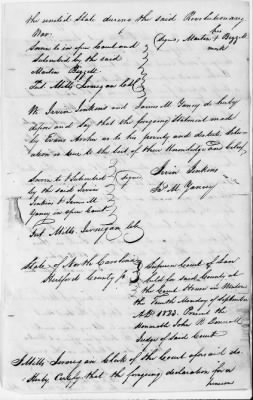 the united State during the said Revolutionary
War.
Sworn to in open Court and
Subscribed by the said
Martin Bizzell
Test Mills Jernigan Clk
Signed, Martin Bizzell
his
mark
We Irvin Jenkins and James M. Yancy do hereby
depose and say that the foregoing Statement made
by as to his poverty and
is true to the best of their Knowledge and belief
Sworn to & Subscribed
by the said Irvin
Jenkins & James M
Yancy in open Court
Test. Mills Jernigan Clk
Signed
Irvin Jenkins
Jas M. Yancey
State of North Carolina
Hertford County
Superior Court of Law
held for said County at
the Court House in
the Tenth Monday of September
A.D. 1833. Present the
Honorable John R Donnell
Judge of Said Court
I Mills Jernigan Clerk of the Court aforesaid do
Hereby Certify that the foregoing declaration for a